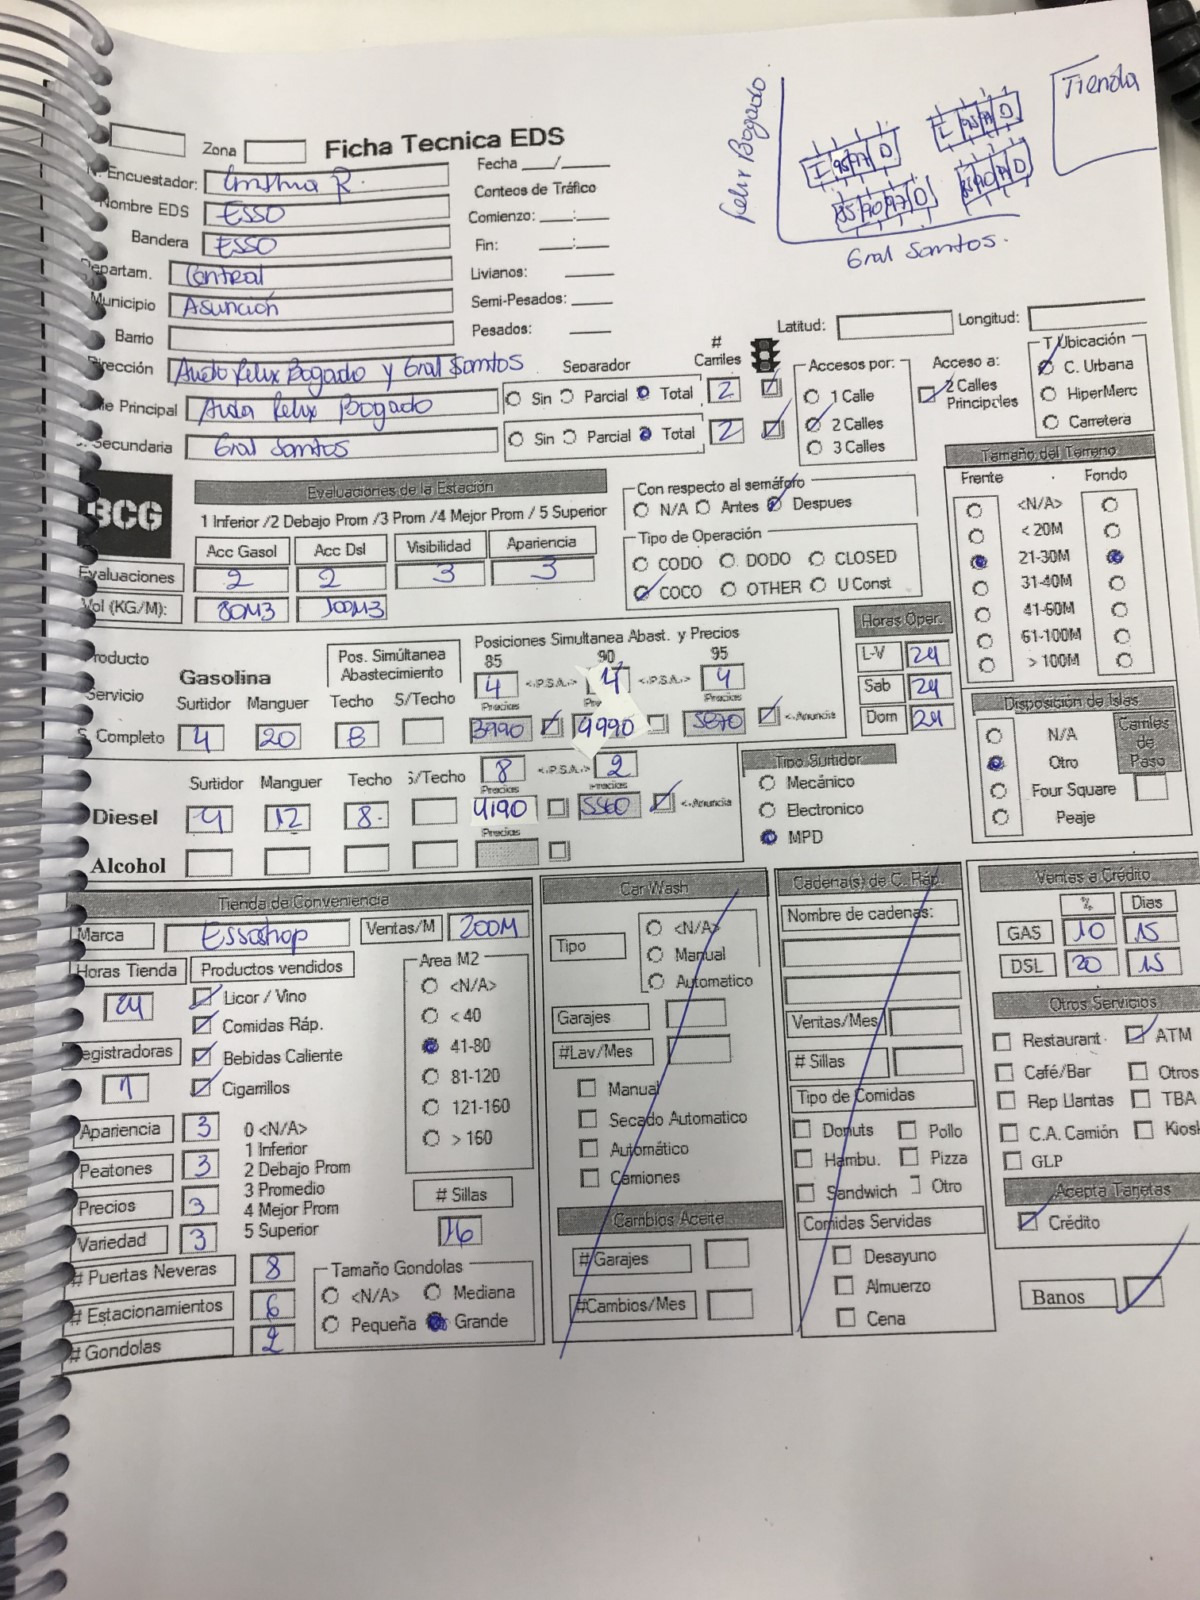 Felix Bogado
Tienda
I 95 97 D
I 95 97 D
85 90 97 D
85 90 97 D
Gral Santos.
Zona
Ficha Tecnica EDS
Encuestador: R.
Nombre EDS ESSO
Bandera ESSO
Departam. Central
Municipio Asunción
Barrio
Dirección Avda Felix Bogado y Gral Santos
Principal Avda Felix Bogado
Secundaria Gral Santos
Fecha ___/____
Conteos de Tráfico
Comienzo: ___:____
Fin: ___:____
Livianos: ____
Semi-Pesados: ____
Pesados: ____
Separador
Sin Parcial Total
Sin Parcial Total
# Carriles
2
2
Latitud: Longitud:
Accesos por:
1 Calle
2 Calles
3 Calles
Acceso a:
2 Calles Principales
T Ubicación
C. Urbana
HiperMerc
Carretera
BCG
Evaluaciones de la Estación
1 Inferior /2 Debajo Prom /3 Prom /4 Mejor Prom / 5 Superior
Acc Gasol Acc Dsl Visibilidad Apariencia
Evaluaciones 2 2 3 3
Vol (KG/M): 80M3 300M3
Con respecto al semáforo
N/A Antes Despues
Tipo de Operación
CODO DODO CLOSED
COCO OTHER U Const
Tamaño del Terreno
Frente Fondo
<N/A>
< 20M
21-30M
31-40M
41-60M
61-100M
> 100M
Horas Oper.
L-V 24
Sab 24
Dom 24
Producto
Gasolina
Pos. Simúltanea Abastecimiento
Posiciones Simultanea Abast. y Precios
85 90 95
4 <.P.S.A.> 4 <.P.S.A.> 4
Servicio Surtidor Manguer Techo S/Techo Precios Precios
S. Completo 4 20 8 3990 4990 5870 <-Anuncia
Surtidor Manguer Techo S/Techo 8 <.P.S.A.> 2
Precios Precios
Diesel 4 12 8. 4190 5560 <-Anuncia
Precios
Alcohol
Tipo Surtidor
Mecánico
Electronico
MPD
Disposición de Islas
N/A
Otro
Four Square
Peaje
Carriles de Paso
Tienda de Conveniencia
Marca Essoshop Ventas/M 200M
Horas Tienda Productos vendidos
24
Licor / Vino
Comidas Ráp.
Bebidas Caliente
Cigarrillos
Registradoras
1
Area M2
<N/A>
< 40
41-80
81-120
121-160
> 160
Apariencia 3
Peatones 3
Precios 3
Variedad 3
0 <N/A>
1 Inferior
2 Debajo Prom
3 Promedio
4 Mejor Prom
5 Superior
# Sillas
16
# Puertas Neveras 8
# Estacionamientos 6
# Gondolas 2
Tamaño Gondolas
<N/A> Mediana
Pequeña Grande
Car Wash
Tipo
<N/A>
Manual
Automatico
Garajes
#Lav/Mes
Manual
Secado Automatico
Automático
Camiones
Cambios Aceite
# Garajes
#Cambios/Mes
Cadena(s) de C. Ráp.
Nombre de cadenas:
Ventas/Mes
# Sillas
Tipo de Comidas
Donuts Pollo
Hambu. Pizza
Sandwich Otro
Comidas Servidas
Desayuno
Almuerzo
Cena
Ventas a Crédito
% Dias
GAS 10 15
DSL 20 15
Otros Servicios
Restaurant ATM
Café/Bar Otros
Rep Llantas TBA
C.A. Camión Kiosk
GLP
Acepta Tarjetas
Crédito
Banos